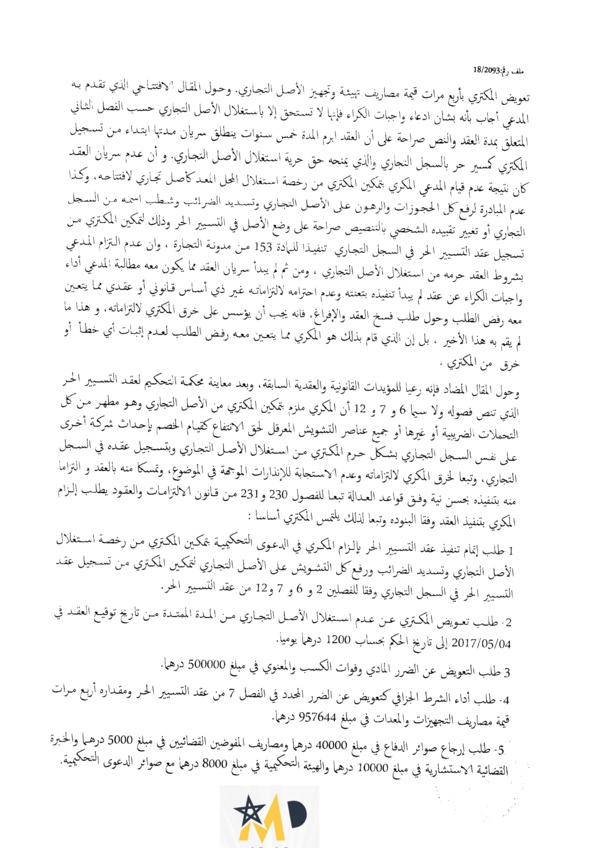 ملف رقم:18/2093
تعويض المكتري بأربع مرات قيمة مصاريف تهيئة وتجهيز الأصل التجاري. وحول المقال الافتتاحي الذي تقدم به
المدعي أجاب بأنه بشان ادعاء واجبات الكراء فإنها لا تستحق إلا باستغلال الأصل التجاري حسب الفصل الثاني
المتعلق بمدة العقد والنص صراحة على أن العقد ابرم المدة خمس سنوات ينطلق سريان مدتها ابتداء من تسجيل
المكتري كمسير حر بالسجل التجاري والذي يمنحه حق حرية استغلال الأصل التجاري. و أن عدم سريان العقد
كان نتيجة عدم قيام المدعي المكري بتمكين المكتري من رخصة استغلال المحل المعد كأصل تجاري لافتتاحه، وكذا
عدم المبادرة لرفع كل الحجوزات والرهون على الأصل التجاري وتسديد الضرائب وشطب اسمه من السجل
التجاري أو تغيير تقييده الشخصي بالتنصيص صراحة على وضع الأصل في التسيير الحر وذلك لتمكين المكتري من
تسجيل عقد التسيير الحر في السجل التجاري تنفيذا للمادة 153 من مدونة التجارة ، وان عدم التزام المدعي
بشروط العقد حرمه من استغلال الأصل التجاري ، ومن ثم لم يبدأ سريان العقد مما يكون معه مطالبة المدعي أداء
واجبات الكراء عن عقد لم يبدأ تنفيذه بتعنته وعدم احترامه لالتزاماته غير ذي أساس قانوني أو عقدي مما يتعين
معه رفض الطلب وحول طلب فسخ العقد والإفراغ، فانه يجب أن يؤسس على خرق المكتري لالتزاماته، و هذا ما
لم يقم به هذا الأخير ، بل إن الذي قام بذلك هو المكري مما يتعين معه رفض الطلب لعدم إثبات أي خطأ أو
خرق من المكتري .
وحول المقال المضاد فإنه رعيا للمؤيدات القانونية والعقدية السابقة، وبعد معاينة محكمة التحكيم لعقد التسيير الحر
الذي تنص فصوله ولا سيما 6 و 7 و 12 أن المكري ملزم بتمكين المكتري من الأصل التجاري وهو مطهر من كل
التحملات الضريبية أو غيرها أو جميع عناصر التشويش المعرقل لحق الانتفاع كقيام الخصم بإحداث شركة أخرى
على نفس السجل التجاري بشكل حرم المكتري من استغلال الأصل التجاري وبتسجيل عقده في السجل
التجاري، وتبعا لخرق المكري لالتزاماته وعدم الاستجابة للإنذارات الموجهة في الموضوع، وتمسكا منه بالعقد و التزاما
منه بتنفيذه بحسن نية وفق قواعد العدالة تبعا للفصول 230 و231 من قانون الالتزامات والعقود يطلب إلزام
المكري بتنفيذ العقد وفقا البنوده وتبعا لذلك يلتمس المكتري أساسا :
1 طلب إتمام تنفيذ عقد التسيير الحر بإلزام المكري في الدعوى التحكيمية بتمكين المكتري من رخصة استغلال
الأصل التجاري وتسديد الضرائب ورفع كل التشويش على الأصل التجاري لتمكين المكتري من تسجيل عقد
التسيير الحر في السجل التجاري وفقا للفصلين 2 و 6 و 7 و12 من عقد التسيير الحر.
2- طلب تعويض المكتري عن عدم استغلال الأصل التجاري من المدة الممتدة من تاريخ توقيع العقد في
2017/05/04 إلى تاريخ الحكم بحساب 1200 درهما يوميا.
3 طلب التعويض عن الضرر المادي وفوات الكسب والمعنوي في مبلغ 500000 درهما.
4- طلب أداء الشرط الجزافي كتعويض عن الضرر المحدد في الفصل 7 من عقد التسيير الحر ومقداره أربع مرات
قيمة مصاريف التجهيزات والمعدات في مبلغ 957644 درهما.
5- طلب إرجاع صوائر الدفاع في مبلغ 40000 درهما ومصاريف المفوضين القضائيين في مبلغ 5000 درهما والخبرة
القضائية الاستشارية في مبلغ 10000 درهما والهيئة التحكيمية في مبلغ 8000 درهما مع صوائر الدعوى التحكيمية.